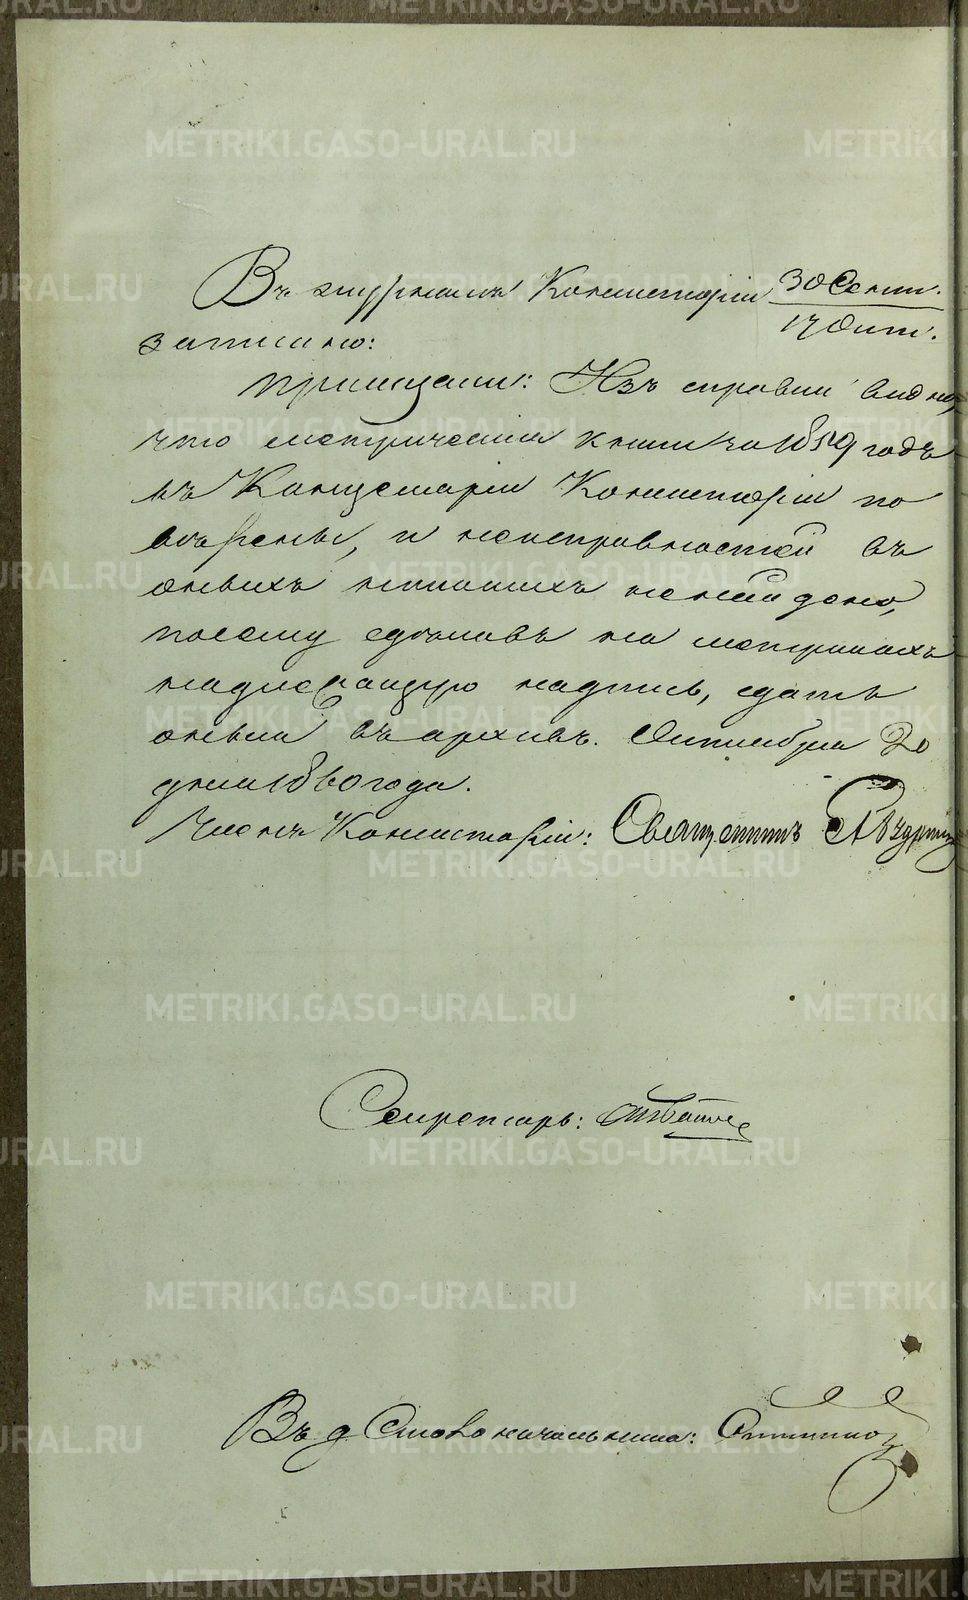 Въ журналѣ Консисторіи 30 Сент.
17 Окт.
записано:
приказали: Изъ справки видно,
что метрическія книги за 1859 годъ
въ Канцеляріи Консисторіи по
вѣрены, и неисправностей въ
оныхъ никакихъ не найдено,
посему сдѣлавъ на метрикахъ
надлежащую надпись, сдать
оныя въ архивъ. Октября 20
дня 1860 года.
Членъ Консисторіи: Священникъ
Секретарь:
Въ д Столоначальника:
METRIKI.GASO-URAL.RU